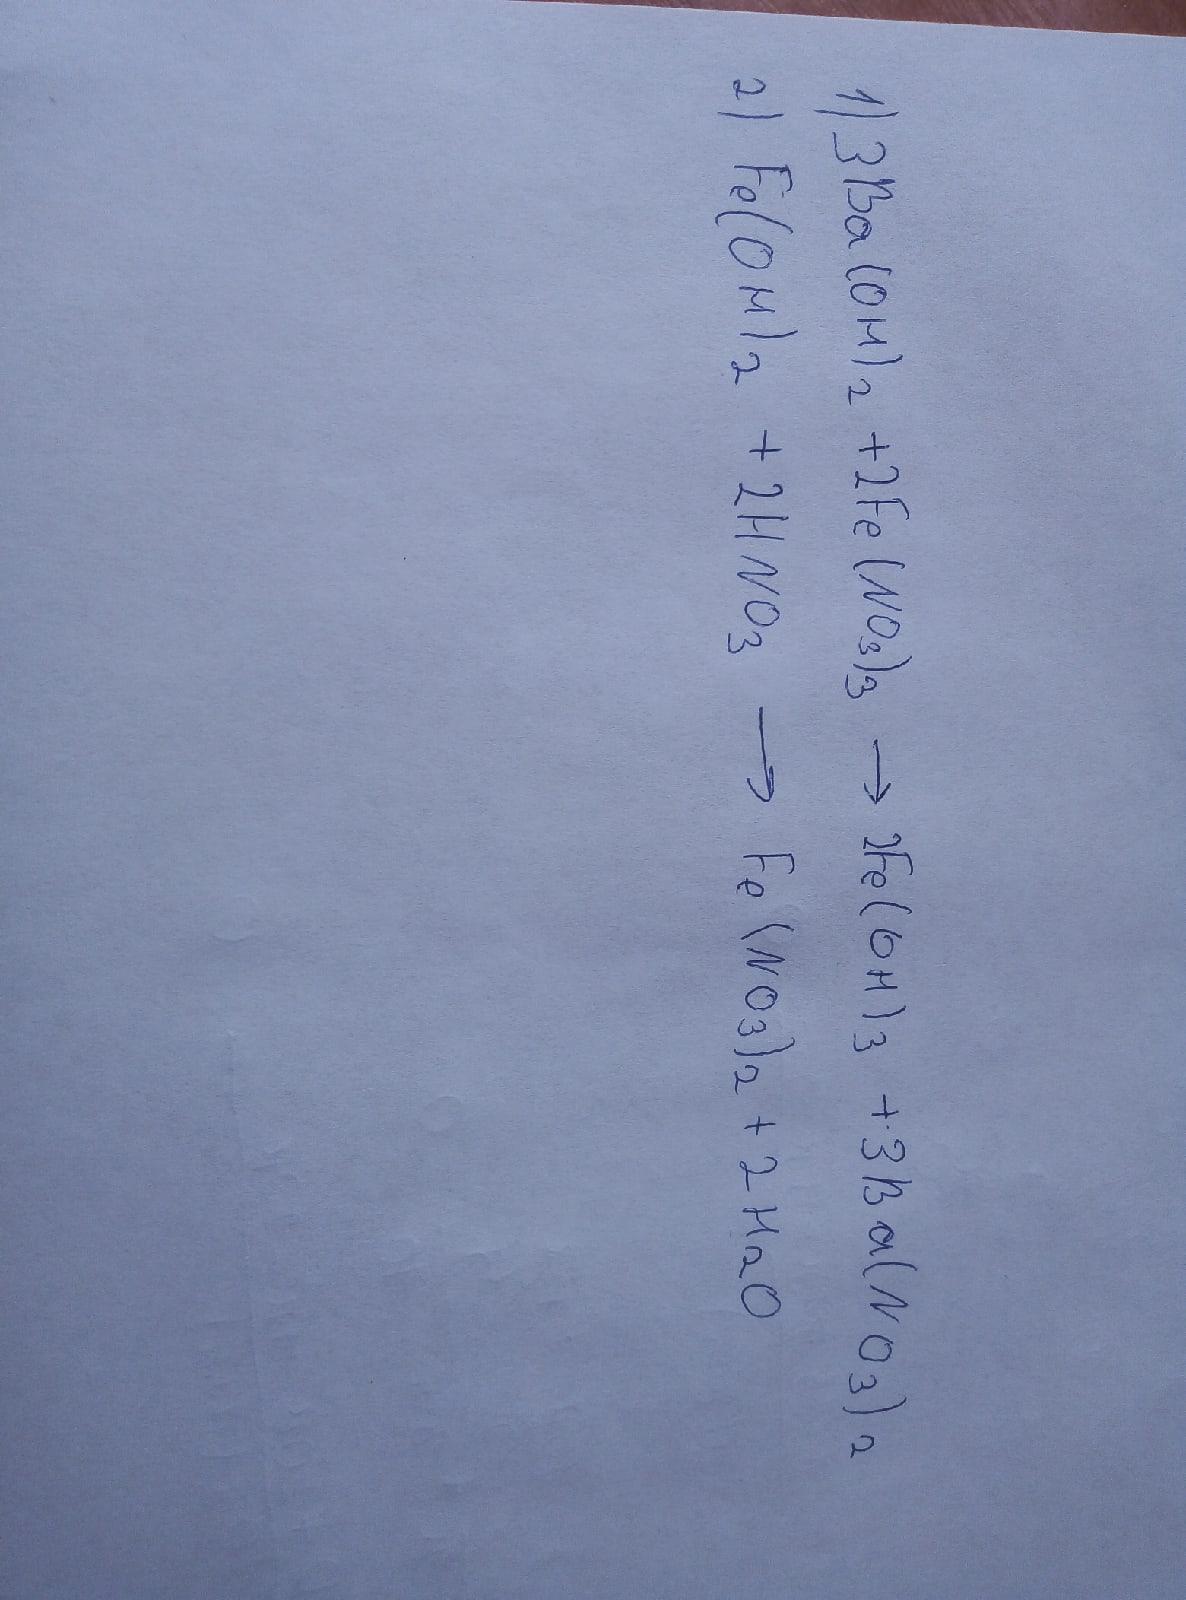 1) 3Ba(OH)2 + 2Fe(NO3)3 → 2Fe(OH)3 + 3Ba(NO3)2
2) Fe(OH)2 + 2HNO3 → Fe(NO3)2 + 2H2O